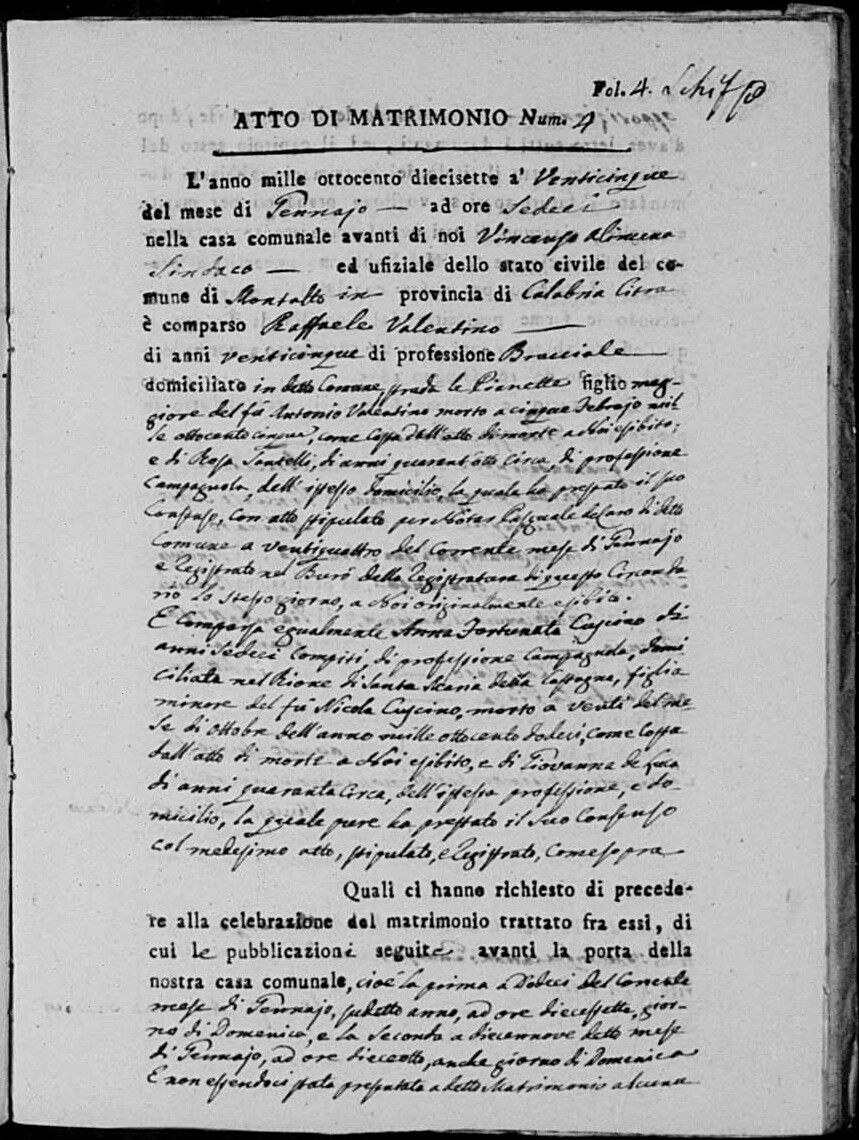 Fol. 4.
ATTO DI MATRIMONIO Num. 4
L'anno mille ottocento diecisette a' Venticinque
del mese di Gennajo — ad ore Sedeci
nella casa comunale avanti di noi Vincenzo Alimena
Sindaco — ed ufiziale dello stato civile del co-
mune di Montalto in provincia di Calabria Citra
è comparso Raffaele Valentino —
di anni venticinque di professione Bracciale —
domiciliato in detto Comune, strada le Pianette figlio mag-
giore del fù Antonio Valentino morto a cinque Febrajo mil-
le ottocento cinque, come costa dall'atto di morte a Noi esibito;
e di Rosa Santelli, di anni quarant'otto circa, di professione
Campagnola, dell'istesso domicilio, la quale ha prestato il suo
Consenso, con atto stipulato per Notar Pasquale de Caro di detto
Comune a ventiquattro del corrente mese di Gennajo
e registrato nel Burò della Registratura di questo Circonda-
rio lo stesso giorno, a Noi originalmente esibito.
E Comparsa egualmente Anna Fortunata Cuscino di
anni Sedeci Compiti, di professione Campagnola, domi
ciliata nel Rione di Santa Maria della Castagna, figlia
minore del fù Nicola Cuscino, morto a venti del me-
se di ottobre dell'anno mille ottocento dodeci, come costa
dall'atto di morte a Noi esibito, e di Giovanna de Luca
di anni quaranta circa, dell'istessa professione, e do-
micilio, la quale pure ha prestato il suo Consenso
col medesimo atto, stipulato, e registrato, come sopra
Quali ci hanno richiesto di precede-
re alla celebrazione del matrimonio trattato fra essi, di
cui le pubblicazioni seguite avanti la porta della
nostra casa comunale, cioè la prima a Dodeci del Corrente
mese di Gennajo, sudetto anno, ad ore diecessette, gior-
no di Domenica, e la Seconda a diecennove detto mese
di Gennajo, ad ore dieceotto, anche giorno di Domenica
E non essendoci stata presentata a detto Matrimonio alcuna